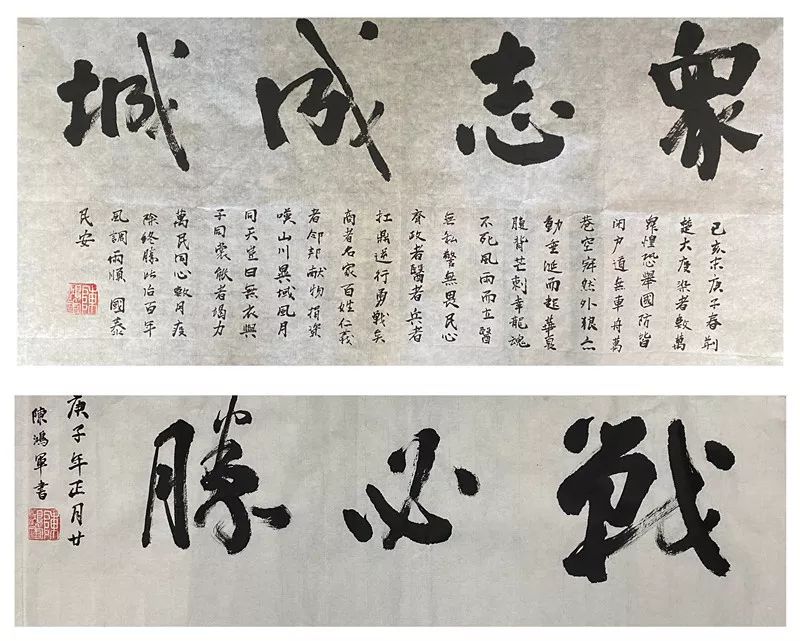 眾志成城
己亥末庚子春荆
楚大疫染者數萬
眾惶恐舉國防皆
閉户道無車舟萬
巷空寂然外狼亦
動垂涎而起華夏
腹背芒刺幸龍魂
不死風雨而立醫
無私警無畏民心
齊政者醫者兵者
扛鼎逆行勇戰矣
商者名家百姓仁義
者邻邦獻物捐資
嘆山川異域風月
同天豈曰無衣與
子同裳能者竭力
萬民同心數月疫
除終勝此治百年
風調雨順 國泰
民安
戰必勝
庚子年正月廿
陳鴻軍書